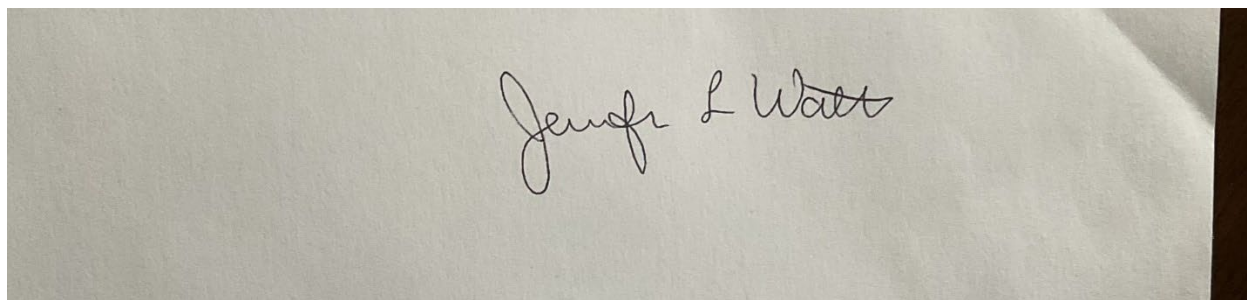 Jennifer L Watt